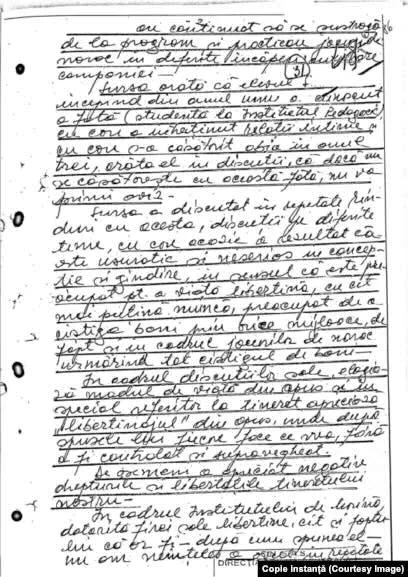 au continuat să se sustragă
de la program și practicau jocuri de
noroc în diferite încăperi
companiei —
(3)
Sursa arată că elevul
începînd din anul unu a cunoscut
o fată (studentă la Institutul Pedagogic)
cu care a întreținut relații intime și
cu care s-a căsătorit abia în anul
trei, arăta el în discuții, că dacă nu
se căsătorește cu această fată, nu va
primi aviz —
Sursa a discutat în repetate rîn-
duri cu acesta, discuții pe diferite
teme, cu care ocazie a rezultat că
este neserios în concep-
ție și gîndire, în sensul că este pre-
ocupat pt. a viața libertină, cu cît
mai puțină muncă, preocupat de a
cîștiga bani prin orice mijloace, de
fapt și în cadrul jocurilor de noroc
urmărind tot cîștigul de bani —
În cadrul discuțiilor sale, elogia-
ză modul de viață din apus și în
special referitor la tineret apreciază
„libertinajul" din apus, unde după
spusele lui fiecare face ce vrea, fără
a fi controlat și supravegheat.
De asemeni a apreciat negativ
drepturile și libertățile tineretului
nostru —
În cadrul Institutului de marină
datorită firei sale libertine, cît și faptu-
lui că ar fi — după cum spunea el —
nu om a în repetate
DIRECȚIA
Copie instanță (Courtesy Image)